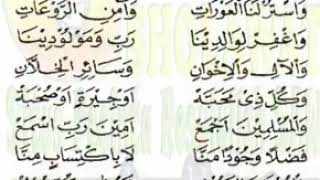 وَاسْتُرْ لَنَا الْعَوْرَاتِ وَآمِنِ الرَّوْعَاتِ
وَاغْفِرْ لِوَالِدِيْنَا رَبِّ وَمَوْلُوْدِيْنَا
وَالْآلِ وَالْإِخْوَانِ وَسَائِرِ الْخِلَّانِ
وَكُلِّ ذِيْ مَحَبَّةْ اَوْجِيْرَةٍ اَوْصُحْبَةْ
وَالْمُسْلِمِيْنَ اَجْمَعْ آمِيْنَ رَبِّ اسْمَعْ
فَضْلًا وَجُوْدًا مَنَّا لَا بِاكْتِسَابٍ مِنَّا